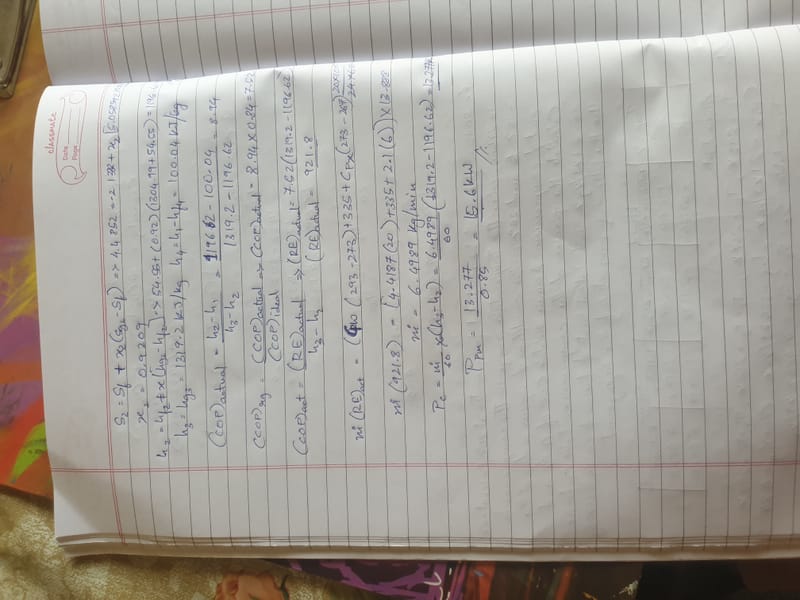 classmate
Date
Page
S₂ = Sf + x₂(Sg₂ - Sf) => 4.4852 = -2.1338 + x₂
x₂ = 0.9209
h₂ = hf₂ + x(hg₂ - hf₂) => 54.55 + (0.92)(1304.99 + 54.55) = 1196.62
h₃ = hg₃ = 1319.2 kJ/kg h₄ = h₁ = hf₄ = 100.04 kJ/kg
(COP)actual = h₂ - h₁ / h₃ - h₂ = 1196.62 - 100.04 / 1319.2 - 1196.62 = 8.94
(COP) = (COP)actual / (COP)ideal => (COP)actual = 8.94 x 0.84 = 7.52
(COP)act = (RE)actual / h₃ - h₂ => (RE)actual = 7.52 (1319.2 - 1196.62)
(RE)actual = 921.8
ṁ (RE)act = (293 - 273) + 335 + Cp (273 - 267)
ṁ (921.8) = (4.4187(20) + 335 + 2.1(6)) x 13.888
ṁ = 6.4989 kg/min
Pc = ṁ/60 x (h₃ - h₂) = 6.4989/60 (1319.2 - 1196.62) = 13.277
= 13.277 / 0.85 = 15.6 kW